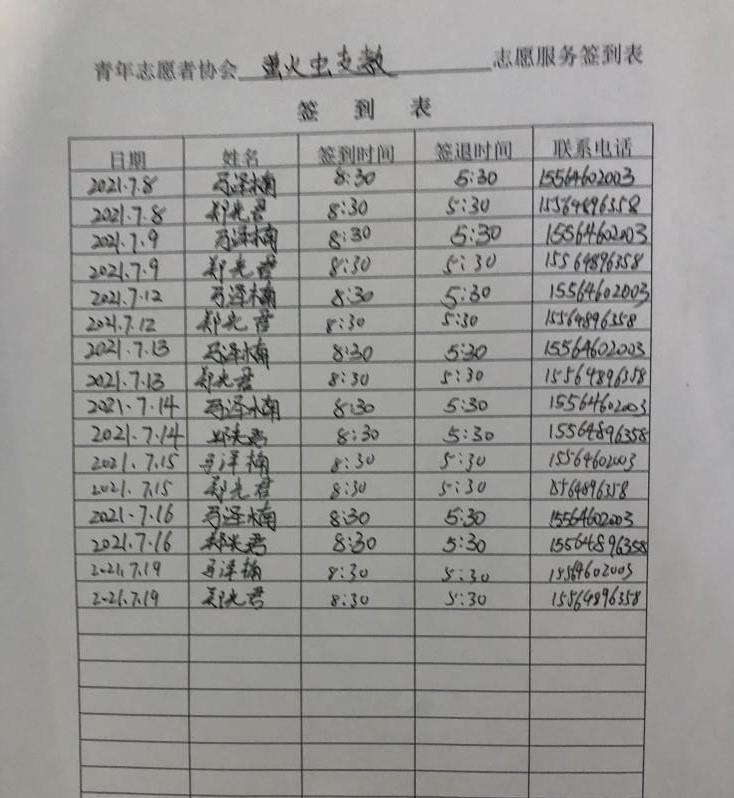 青年志愿者协会 萤火虫支教 志愿服务签到表
签 到 表
日期 姓名 签到时间 签退时间 联系电话
2021.7.8 马泽楠 8:30 5:30 15564602003
2021.7.8 郑光君 8:30 5:30 15564896358
2021.7.9 马泽楠 8:30 5:30 15564602003
2021.7.9 郑光君 8:30 5:30 15564896358
2021.7.12 马泽楠 8:30 5:30 15564602003
2021.7.12 郑光君 8:30 5:30 15564896358
2021.7.13 马泽楠 8:30 5:30 15564602003
2021.7.13 郑光君 8:30 5:30 15564896358
2021.7.14 马泽楠 8:30 5:30 15564602003
2021.7.14 郑光君 8:30 5:30 15564896358
2021.7.15 马泽楠 8:30 5:30 15564602003
2021.7.15 郑光君 8:30 5:30 15564896358
2021.7.16 马泽楠 8:30 5:30 15564602003
2021.7.16 郑光君 8:30 5:30 15564896358
2021.7.19 马泽楠 8:30 5:30 15564602003
2021.7.19 郑光君 8:30 5:30 15564896358